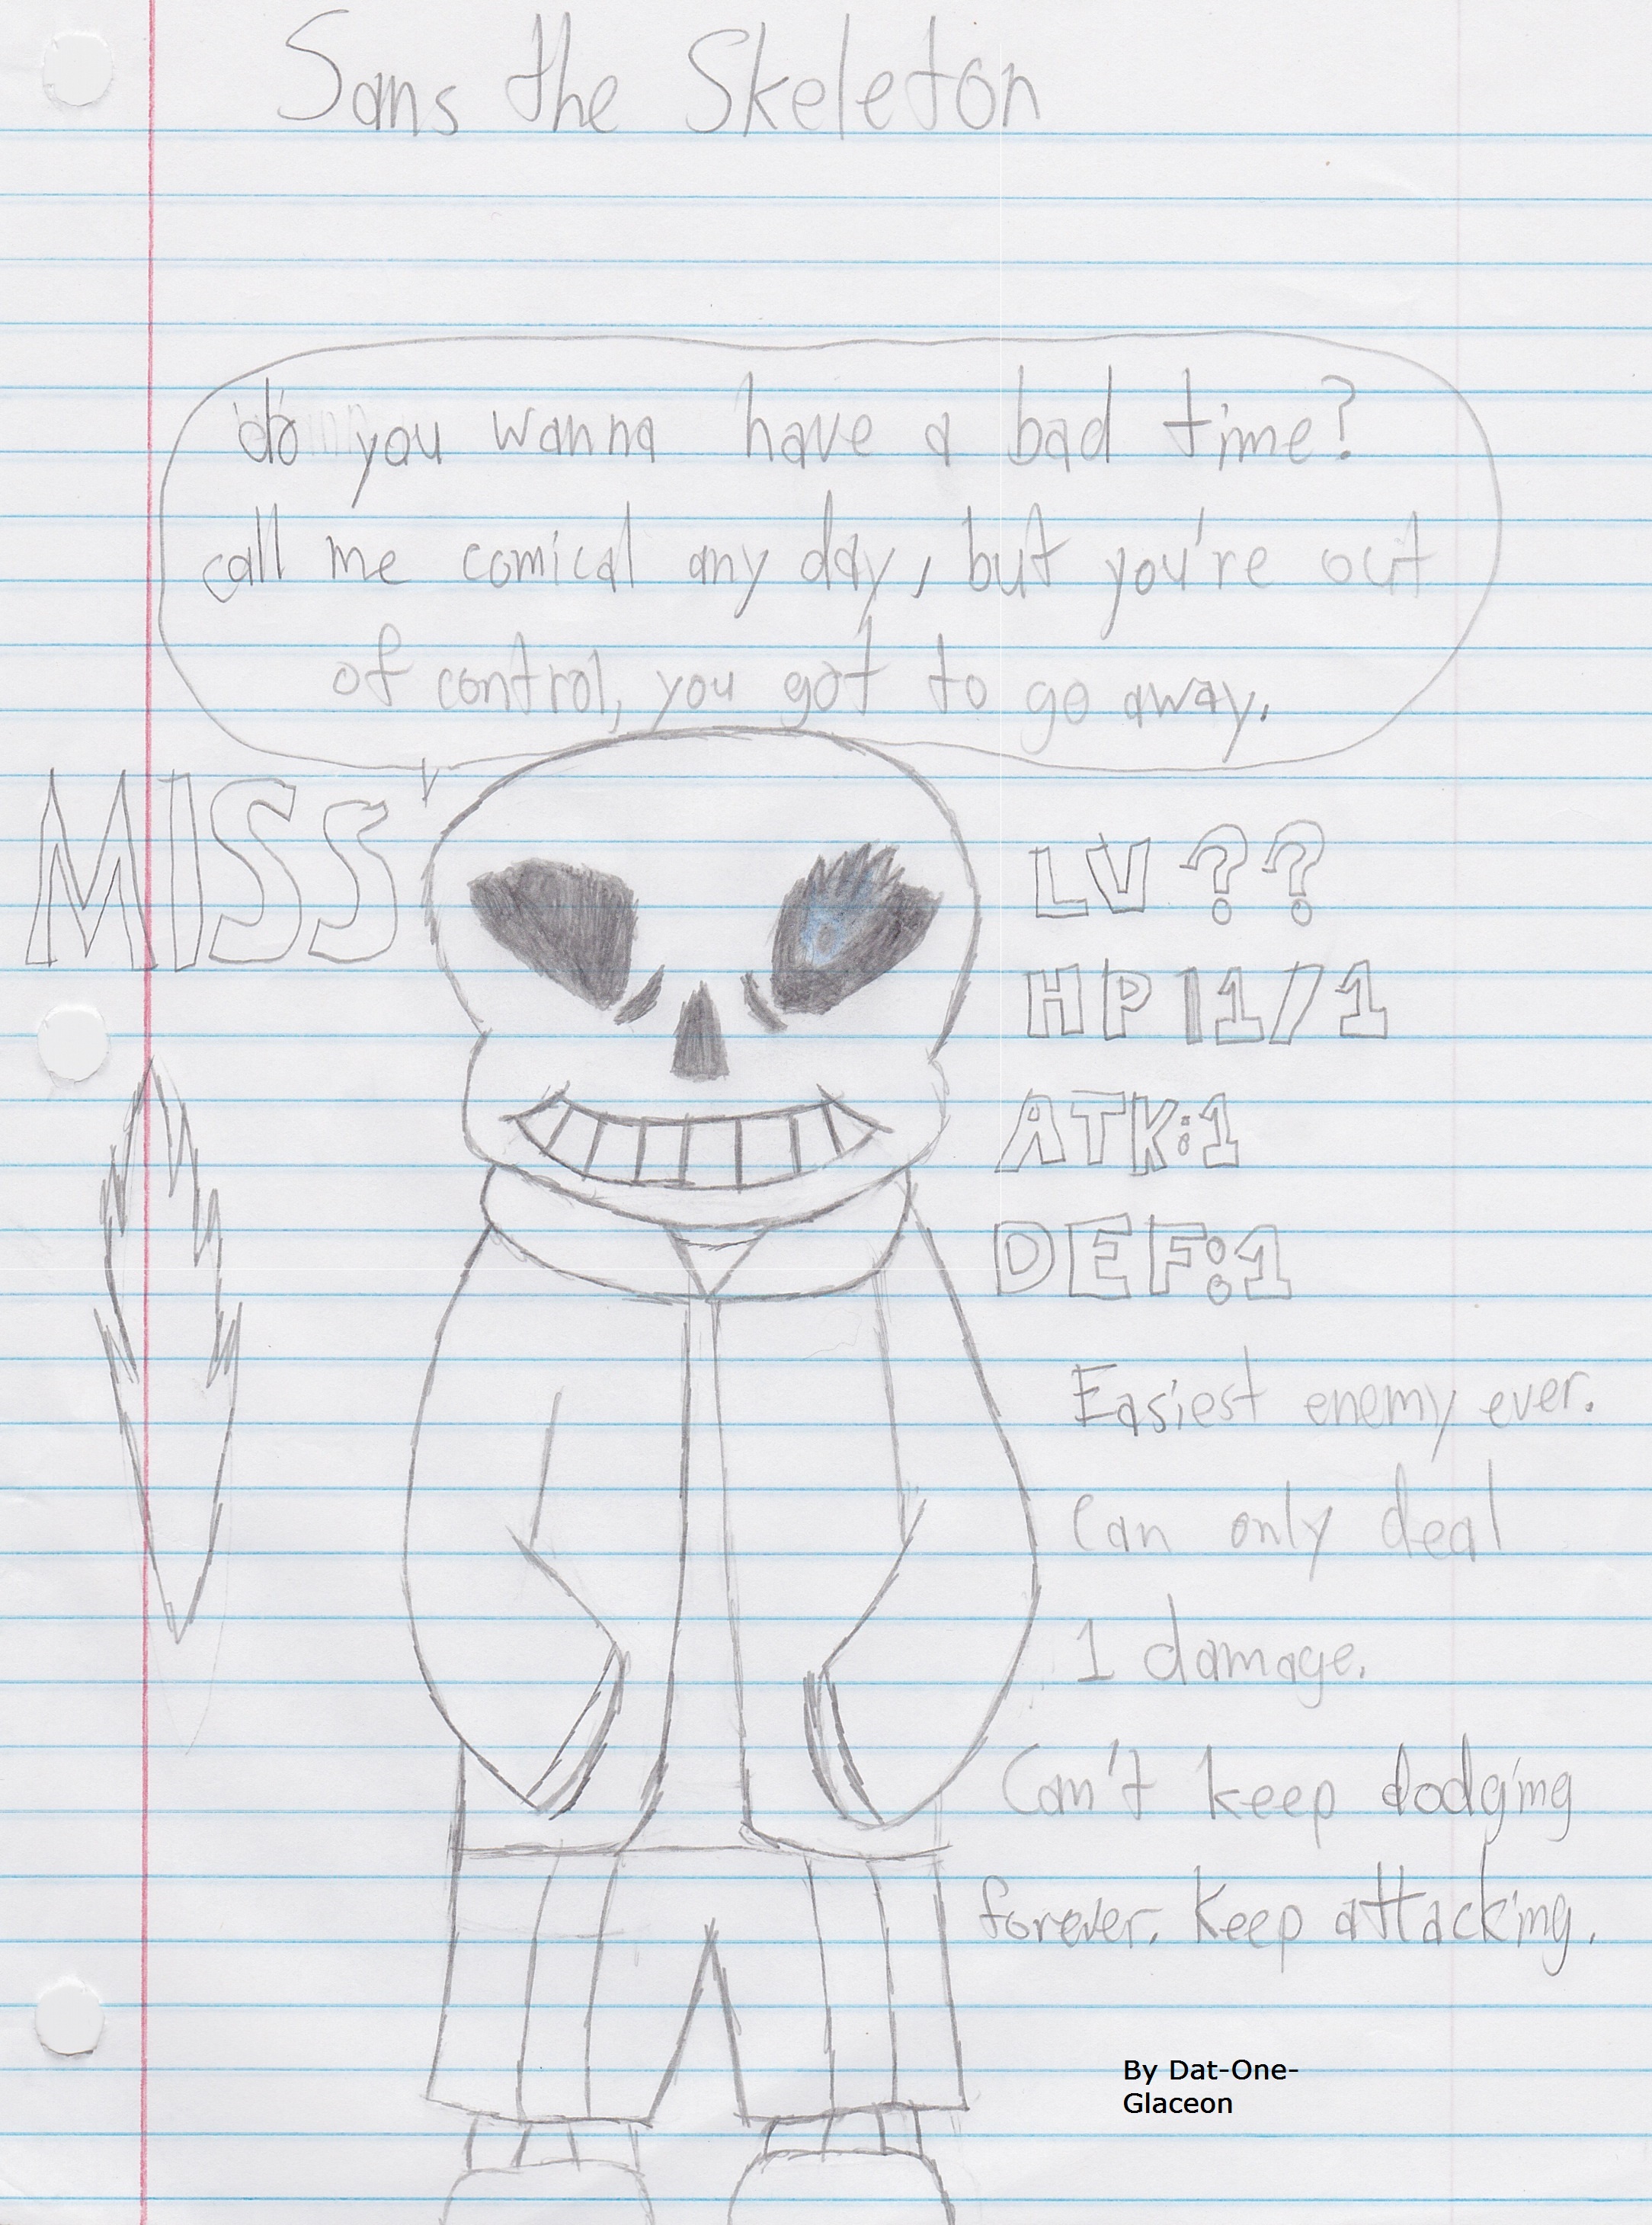 Sans the Skeleton
do you wanna have a bad time?
call me comical any day, but you're out
of control, you got to go away.
MISS
LV ??
HP 1/1
ATK:1
DEF:1
Easiest enemy ever.
Can only deal
1 damage.
Can't keep dodging
forever. Keep attacking.
By Dat-One-
Glaceon